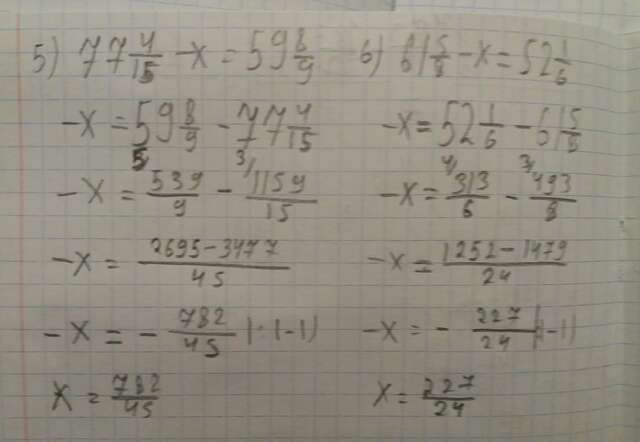 5) 77 4/15 - x = 59 8/9
-x = 59 8/9 - 77 4/15
-x = 539/9 - 1159/15
-x = 2695-3477/45
-x = - 782/45 |·(-1)
x = 782/45
6) 61 5/8 - x = 52 1/6
-x = 52 1/6 - 61 5/8
-x = 313/6 - 493/8
-x = 1252-1479/24
-x = - 227/24 |(-1)
x = 227/24